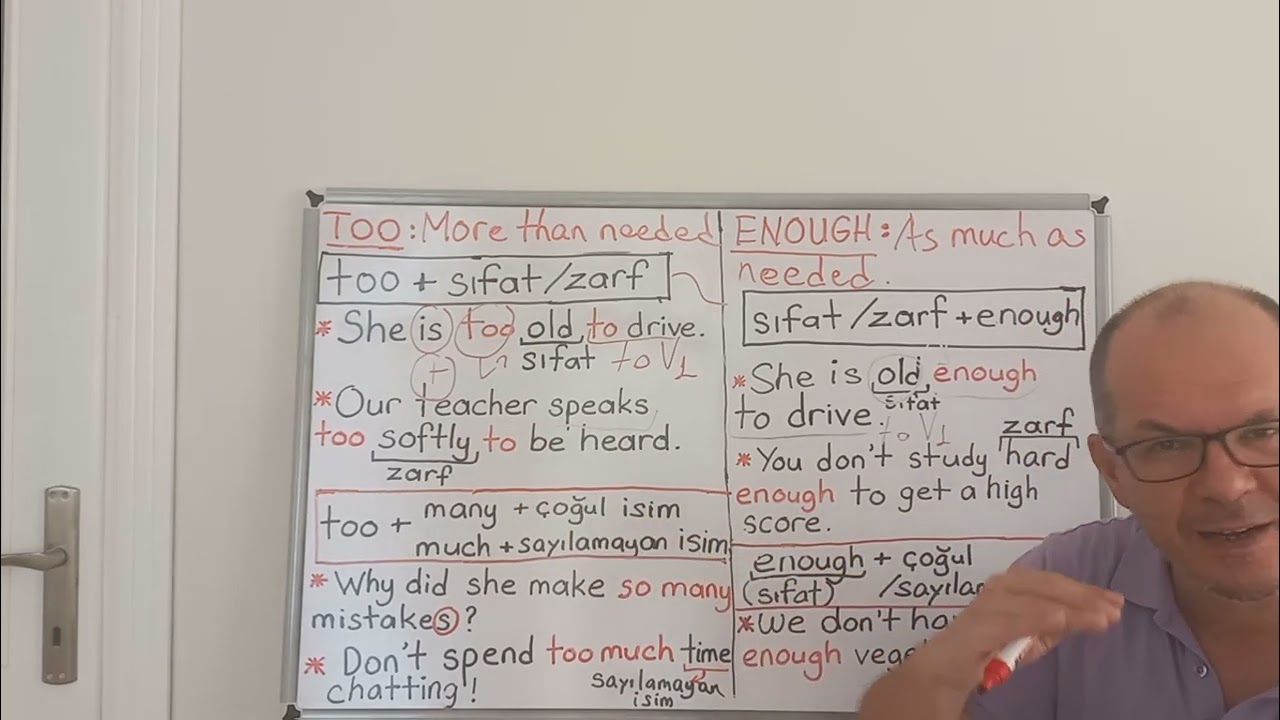 TOO: More than needed
too + sıfat/zarf
* She is too old to drive.
+ sıfat to V1
* Our teacher speaks
too softly to be heard.
zarf
too + many + çoğul isim
much + sayılamayan isim
* Why did she make so many
mistakes?
* Don't spend too much time
chatting!
sayılamayan
isim
ENOUGH: As much as
needed.
sıfat/zarf + enough
* She is old enough
sıfat
to drive. to V1
zarf
* You don't study hard
enough to get a high
score.
enough + çoğul
(sıfat)
* We don't
enough